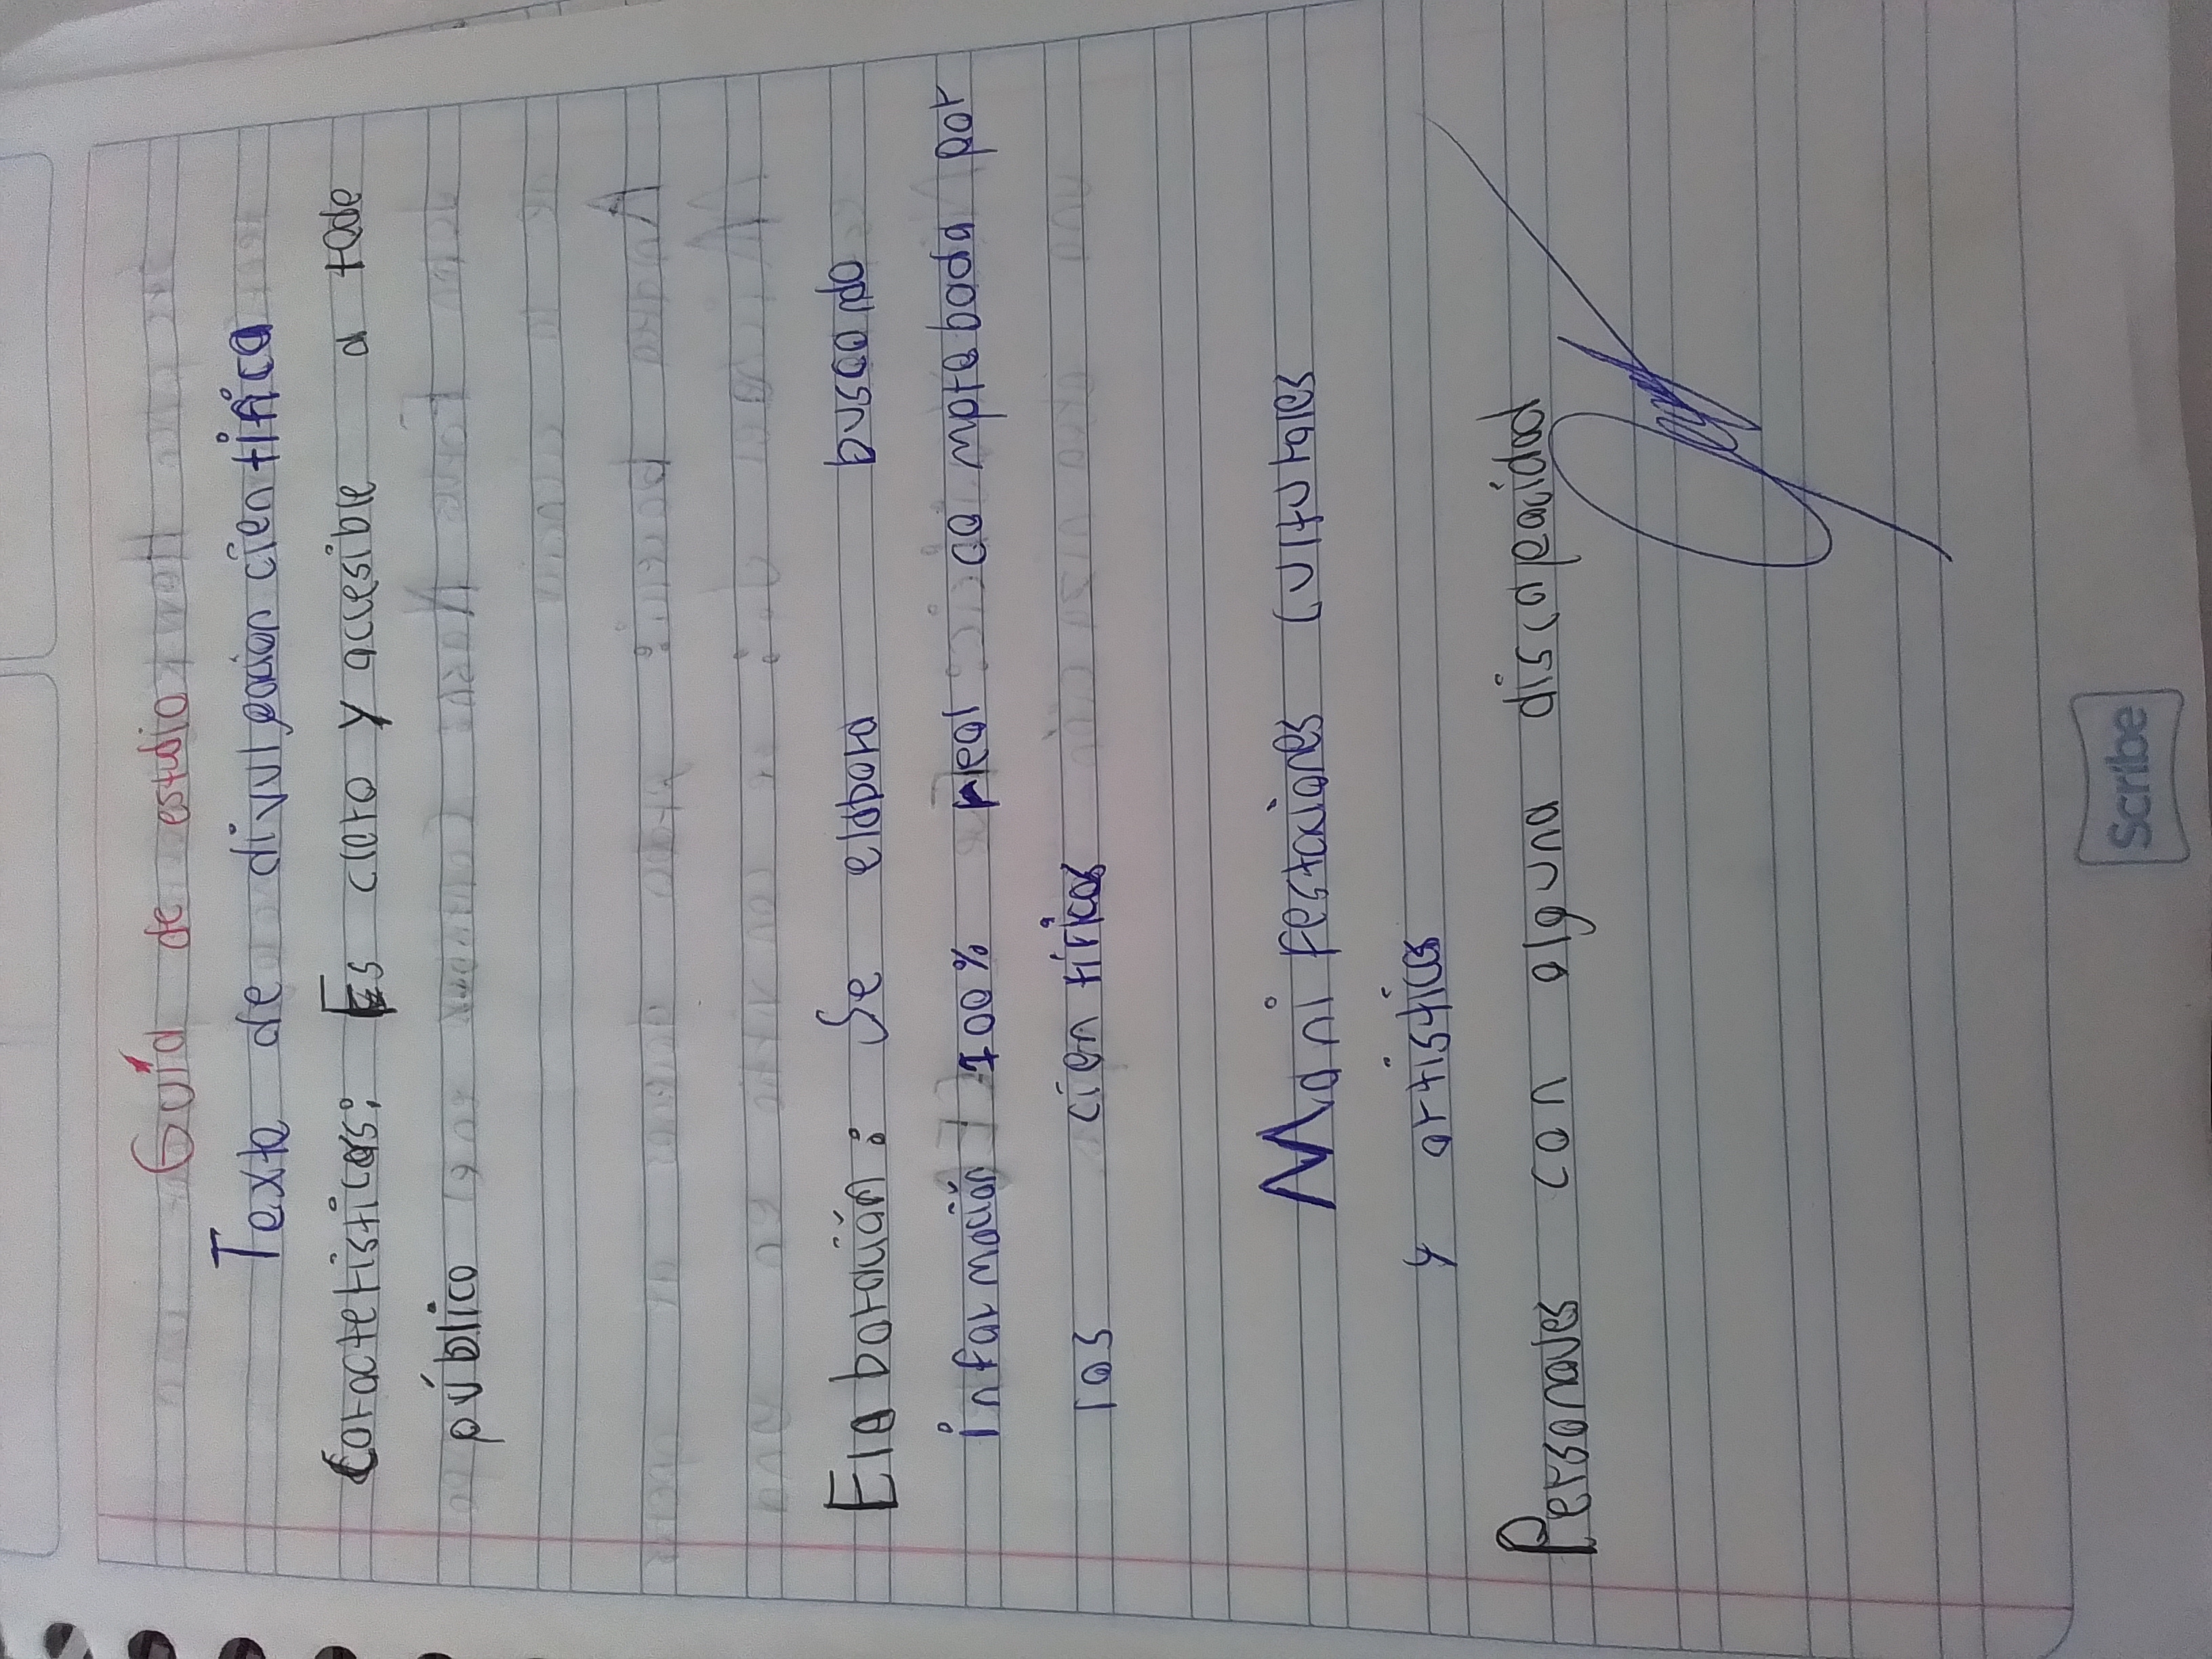 Guía de estudio
Texto de divulgación científica
Caracteristicas: Es claro y accesible a tode
público
Elaboración: Se elabora buscando
información 100% real comprobada por
los científicos
Manifestaciones Culturales
y artisticas
Personajes con alguna discapacidad
Scribe